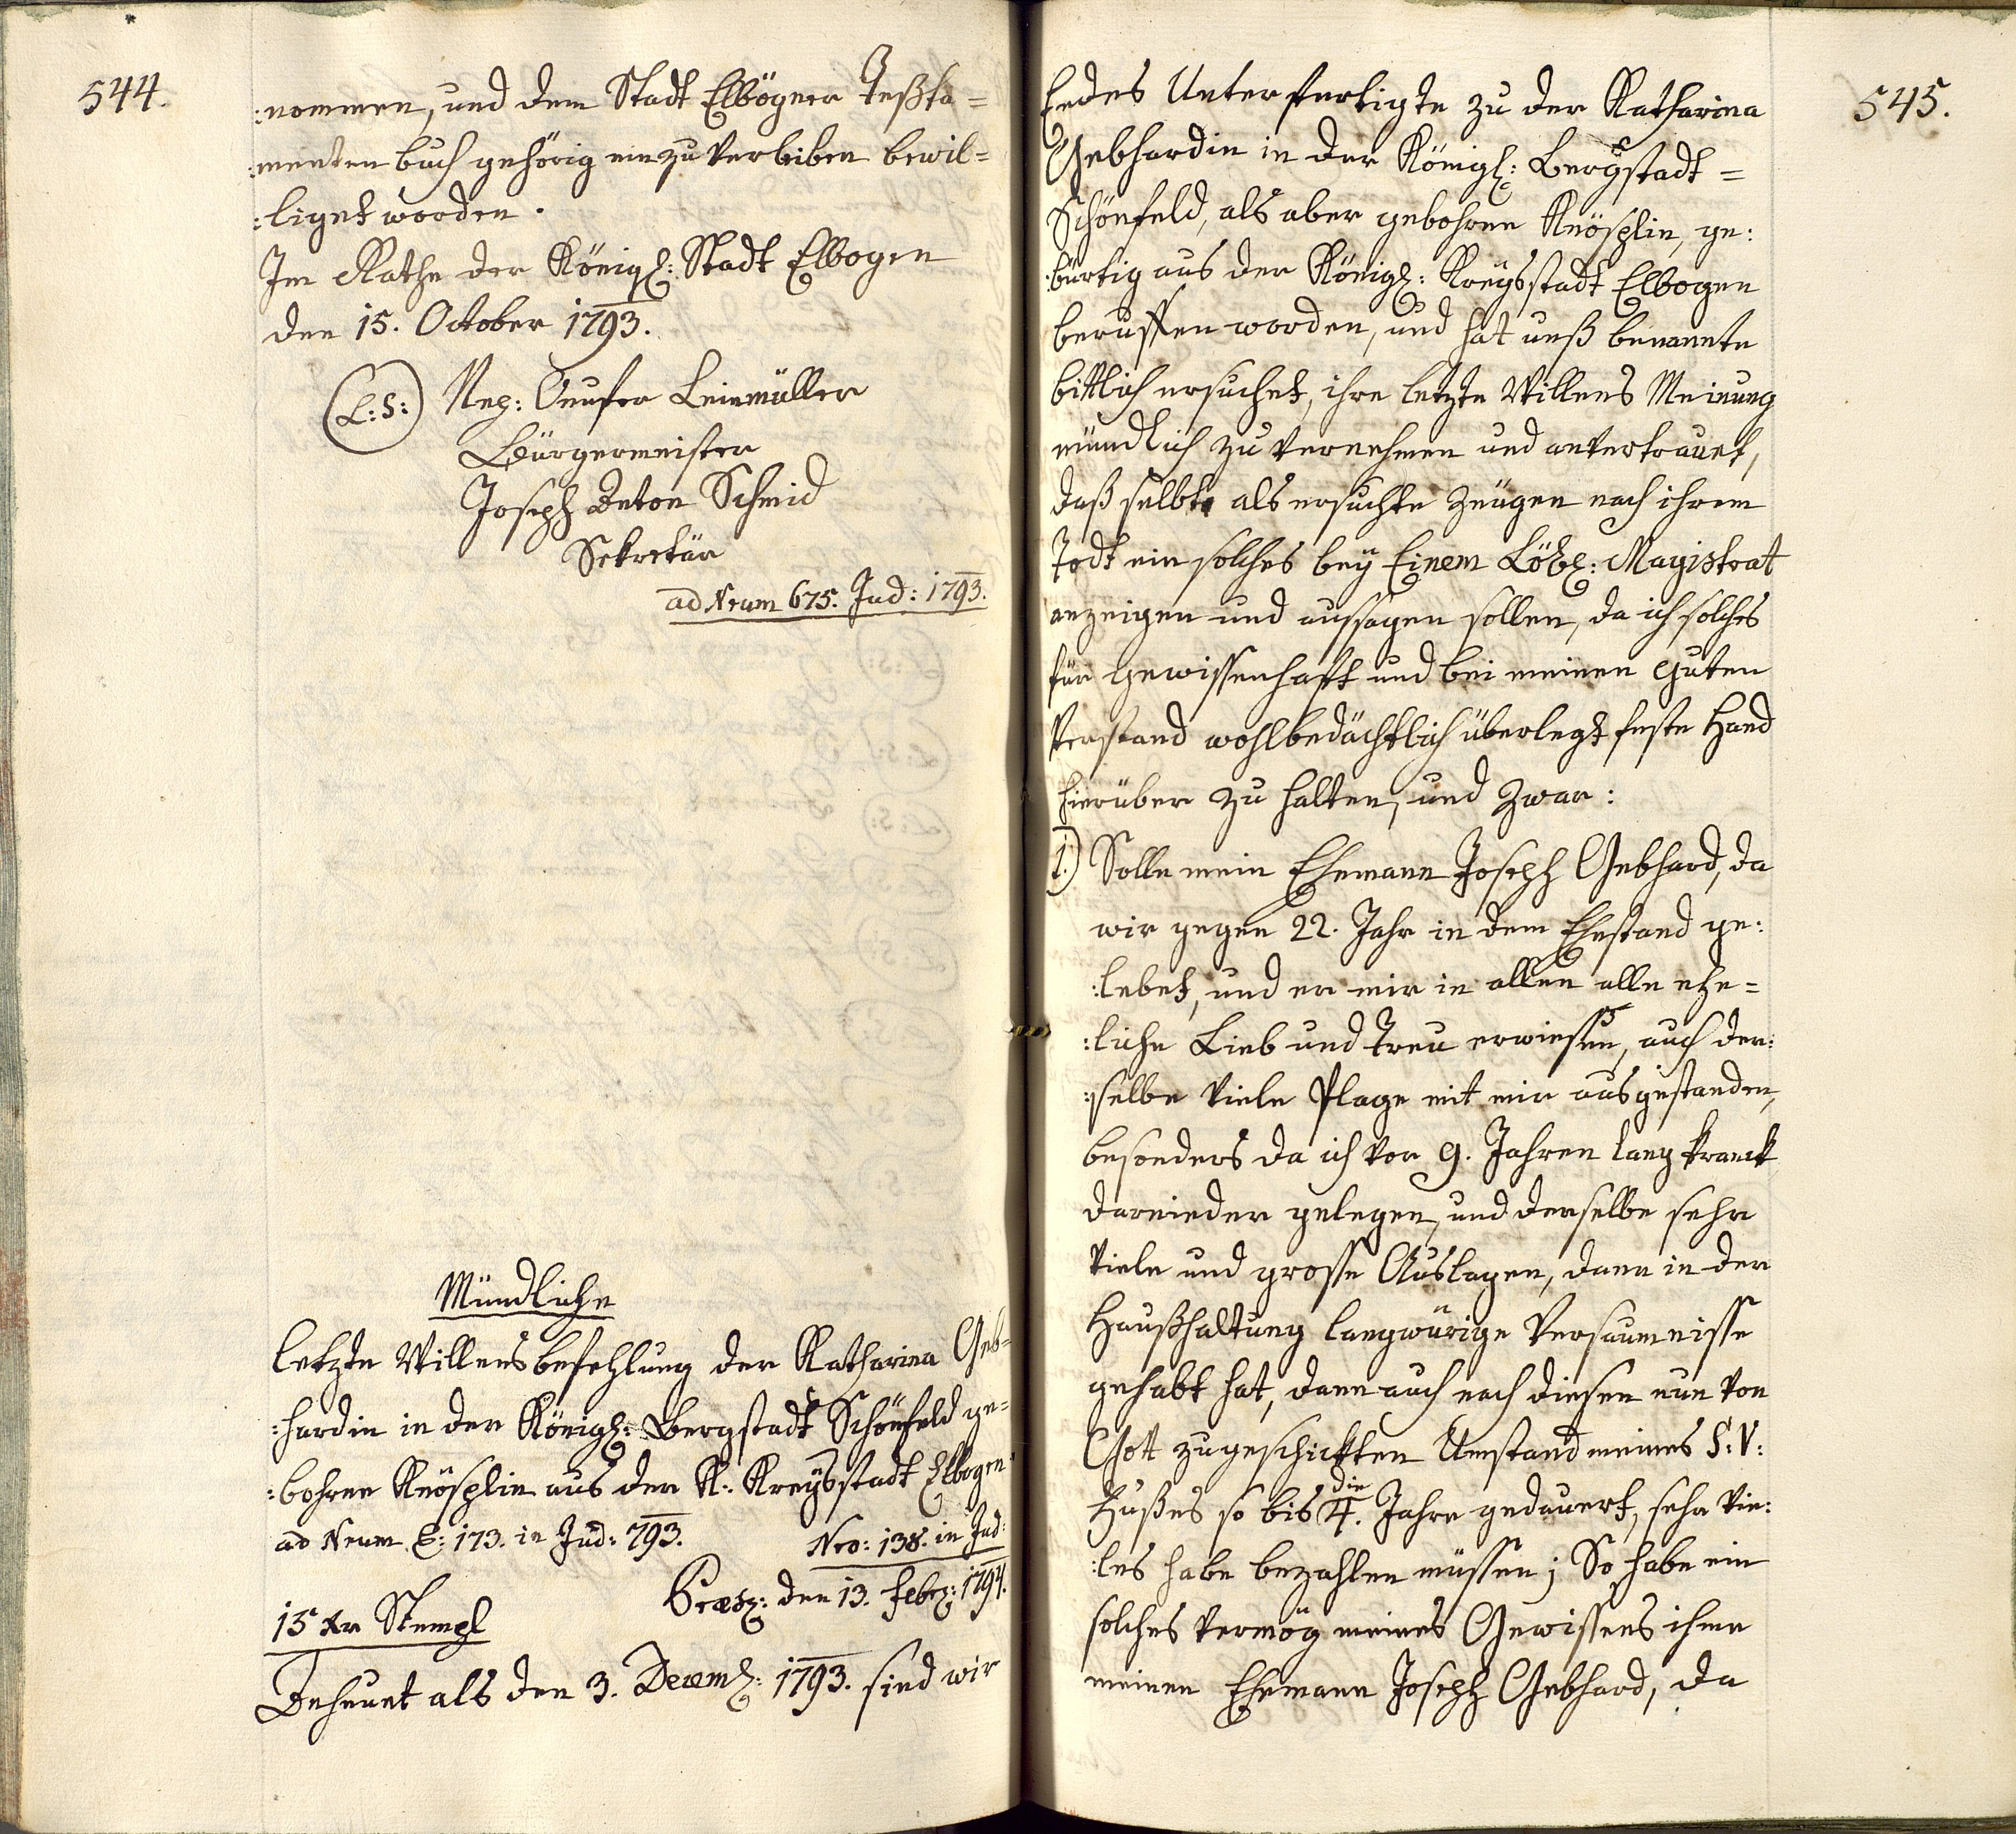 544.
:nommen, und dem Stadt Elbögner Testa=
:menten buch gehörig einzuverleiben bewil=
:liget worden.
Im Rathe der Königl: Stadt Elbogen
den 15. October 1793.
(L:S:) Nep: Onufer Leinmüller
Bürgermeister
Joseph Anton Schmid
Sekretär
ad Nrum 675. Jud: 1793.
Mündliche
letzte Willensbefehlung der Katharina Geb=
:hardin in der Königl: Bergstadt Schönfeld ge=
:bohrne Knösplin aus der K: Kreysstadt Elbogen
ad Nrum E: 173. in Jud: 793.
Nro: 138. in Jud:
Præs: den 13. Febr: 1794.
15 Xr Stempl
Anheunt als den 3. Decemb: 1793. sind wir
545.
Endes Unterfertigte zu der Katharina
Gebhardin in der Königl: Bergstadt=
Schönfeld, als aber gebohrne Knösplin, ge:
:bürtig aus der Königl: Kreysstadt Elbogen
beruffen worden, und hat unß benannte
bittlich ersuchet, ihre letzte Willens Meinung
mündlich zu vernehmen und anvertrauet,
daß selbte als ersuchte Zeügen nach ihrem
Todt ein solches bey Einem Löbl: Magistrat
anzeigen und aussagen sollen, da ich solches
für Gewissenhafft und bei meinen guten
Verstand wohlbedächtlich überlegt feste Hand
hierüber zu halten, und zwar:
1.) Solle mein Ehemann Joseph Gebhard, da
wir gegen 22. Jahr in dem Ehestand ge:
:lebet, und er mir in allen alle ehe=
:liche Lieb und Treu erwiesen, auch der:
:selbe viele Plage mit mir ausgestanden,
besonders da ich vor 9. Jahren lang kranck
darnieder gelegen, und derselbe sehr
viele und grosse Auslagen, dann in der
Haußhaltung langwürige Versaumnisse
gehabt hat, dann auch nach diesen nun von
Gott zugeschickten Umstand meines S:V:
Fußes so bis die 4. Jahre gedauert, sehr vie:
:les habe bezahlen müssen; So habe ein
solches vermög meines Gewissens ihme
meinen Ehemann Joseph Gebhard, da